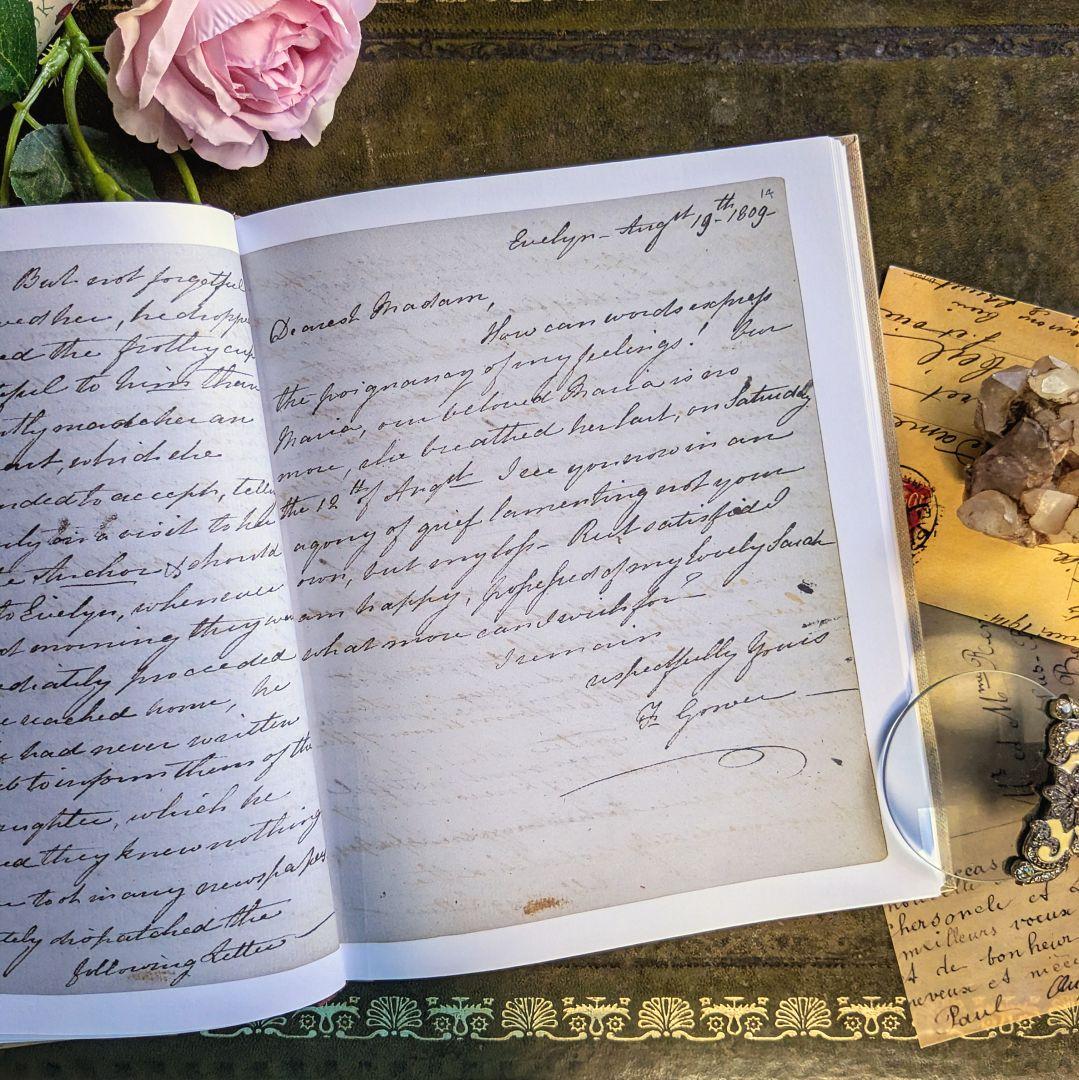 But not forgetful
ved her, he dropp
ed the frothy cup
eful to hims than
ntly made her an
ent, which she
nded to accept, tellin
nly in a visit to her
e Anchor & should
to Evelyn, whenever
xt morning they wer
ediately proceeded
e reached home, he
had never written
eb to inform them of the
aughter, which he
ed they knew nothing
e took in any newspaper
tely dispatched the
following Letter —
14
Evelyn — Augst 19th — 1809
Dearest Madam,
How can words express
the poignancy of my feelings! Our
Maria, our beloved Maria is no
more, she breathed her last, on Saturday
the 12th of Augst. I see you now in an
agony of grief lamenting not your
own, but my loss — Rest satisfied I
am happy, possessed of my lovely Sarah
what more can I wish for?
I remain
respectfully Yours
Fr Gower —
personele et
meilleurs voeux
et de bonheur
neveux et nièce
Paul